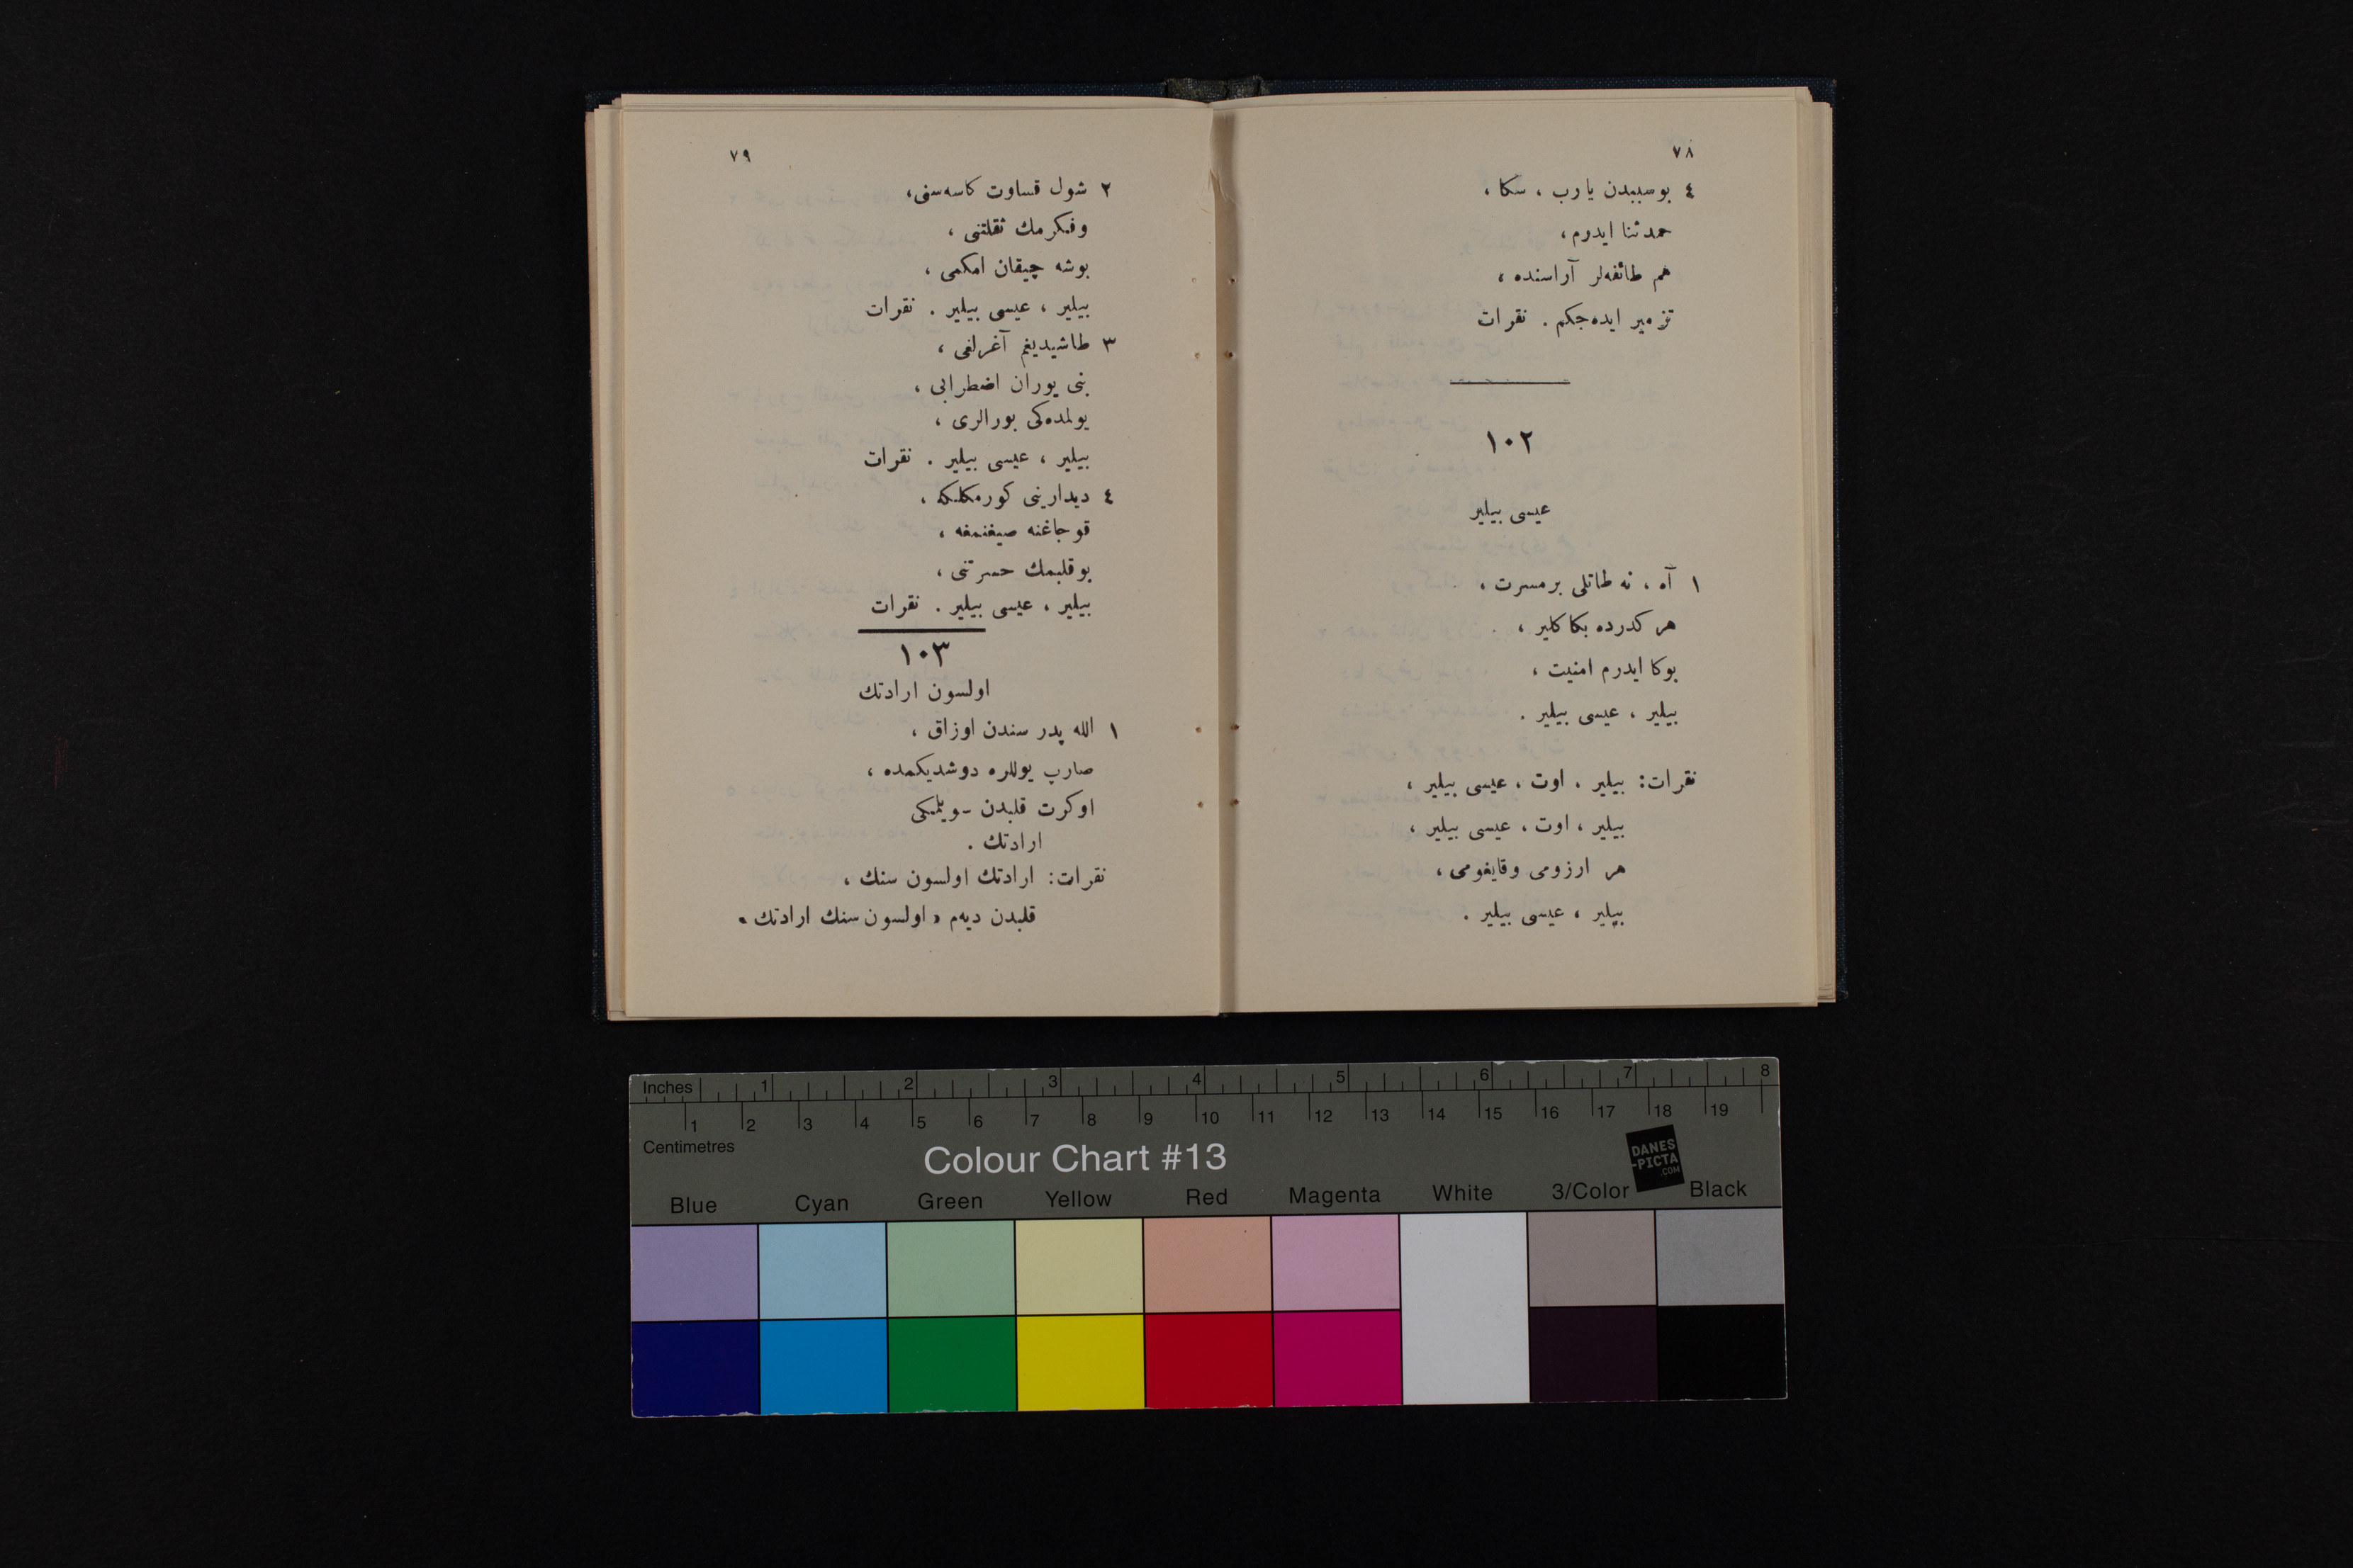 ٧٨
٤ بوسببدن يارب ، سكا ،
حمد ثنا ايدرم ،
هم طائفه‌لر آراسنده ،
تزمير ايده‌جكم . نقرات
١٠٢
عيسى بيلير
١ آه ، نه طاتلى بر مسرت ،
هر كدرده بكا كلير ،
بوكا ايدرم امنيت ،
بيلير ، عيسى بيلير .
نقرات: بيلير ، اوت ، عيسى بيلير ،
بيلير ، اوت ، عيسى بيلير ،
هر ارزومى وقايغومى ،
بيلير ، عيسى بيلير .
٧٩
٢ شول قساوت كاسه‌سنى ،
وفكرمك ثقلتنى ،
بوشه چيقان امكمى ،
بيلير ، عيسى بيلير . نقرات
٣ طاشيديغم آغرلغى ،
بنى يوران اضطرابى ،
يولمده‌كى بورالرى ،
بيلير ، عيسى بيلير . نقرات
٤ ديدارينى كورمكلكه ،
قوجاغنه صيغنمغه ،
بو قلبمك حسرتنى ،
بيلير ، عيسى بيلير . نقرات
١٠٣
اولسون ارادتك
١ الله پدر سندن اوزاق ،
صارپ يوللره دوشديكمده ،
اوكرت قلبدن سويلمكى
ارادتك .
نقرات: ارادتك اولسون سنك ،
قلبدن ديه‌م « اولسون سنك ارادتك »
Inches 1 2 3 4 5 6 7 8
1 2 3 4 5 6 7 8 9 10 11 12 13 14 15 16 17 18 19
Centimetres
Colour Chart #13
DANES
-PICTA
.COM
Blue Cyan Green Yellow Red Magenta White 3/Color Black